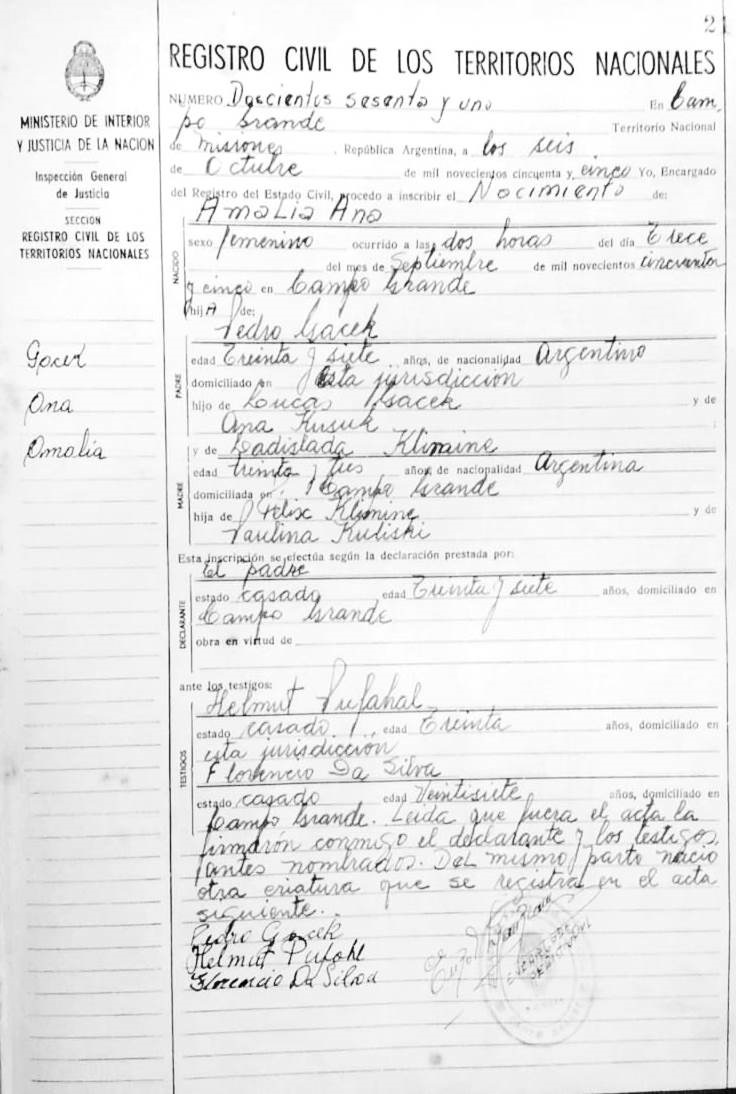 2
REGISTRO CIVIL DE LOS TERRITORIOS NACIONALES
MINISTERIO DE INTERIOR
Y JUSTICIA DE LA NACION
Inspección General
de Justicia
SECCION
REGISTRO CIVIL DE LOS
TERRITORIOS NACIONALES
Gacek
Ana
Amalia
NUMERO Doscientos sesenta y uno En Cam,
po Grande Territorio Nacional
de Misiones, República Argentina, a los seis
de Octubre de mil novecientos cincuenta y cinco Yo, Encargado
del Registro del Estado Civil, procedo a inscribir el Nacimiento de:
Amalia Ana
NACIDO
sexo femenino ocurrido a las dos horas del día Trece
del mes de Septiembre de mil novecientos cincuenta
y cinco en Campo Grande
hijA de:
Pedro Gacek
PADRE
edad Treinta y siete años, de nacionalidad Argentino
domiciliado en esta jurisdicción
hijo de Lucas Gacek y de
Ana Kusuk
y de Ladislada Klimine
MADRE
edad treinta y tres años, de nacionalidad Argentina
domiciliada en Campo Grande
hija de Felix Klimine y de
Paulina Kuliski
Esta inscripción se efectúa según la declaración prestada por:
El padre
DECLARANTE
estado casado edad Treinta y siete años, domiciliado en
Campo Grande
obra en virtud de
ante los testigos:
Helmut Pufahal
TESTIGOS
estado casado edad Treinta años, domiciliado en
esta jurisdicción
Florencio Da Silva
estado casado edad Veintisiete años, domiciliado en
Campo Grande. Leída que fuera el acta la
firmarón conmigo el declarante y los testigos,
antes nombrados. Del mismo parto nacio
otra criatura que se registra en el acta
siguiente.
Pedro Gacek
Helmut Pufahl
Florencio Da Silva